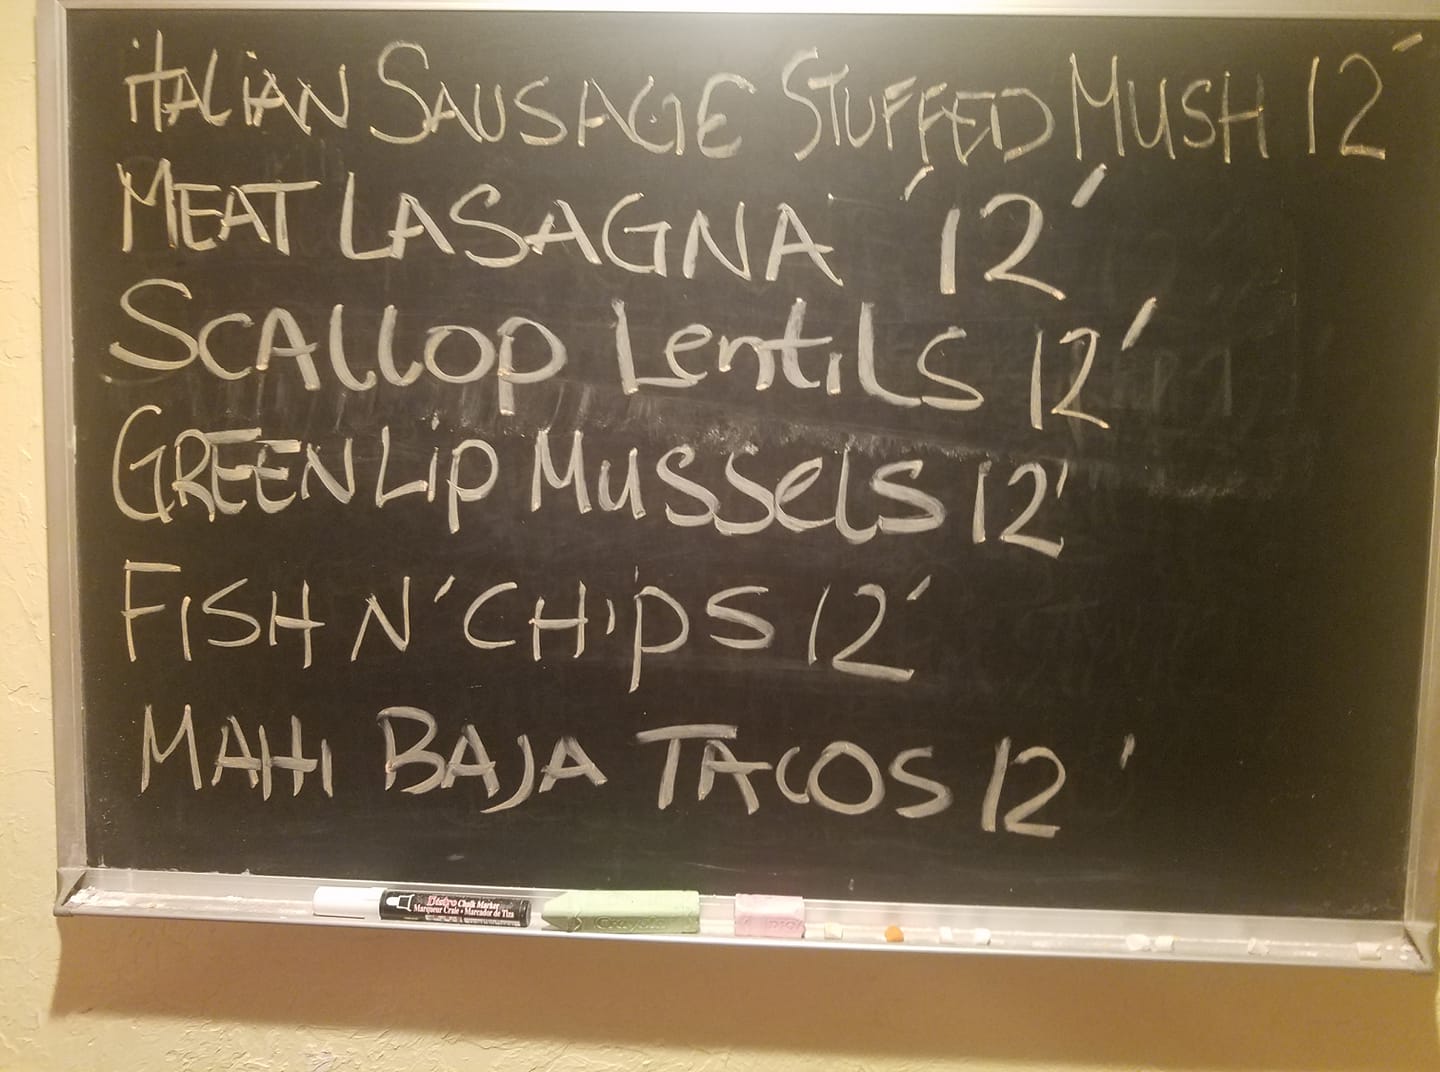 iTALiAN SAUSAGE STUFFED MUSH 12'
MEAT LASAGNA '12'
SCALLOP LentiLS 12'
GREEN Lip MUSSelS 12'
FISH N' CHiPS 12'
MAHI BAJA TACOS 12'
Bistro Chalk Marker
Marqueur Craie • Marcador de Tiza
Crayola